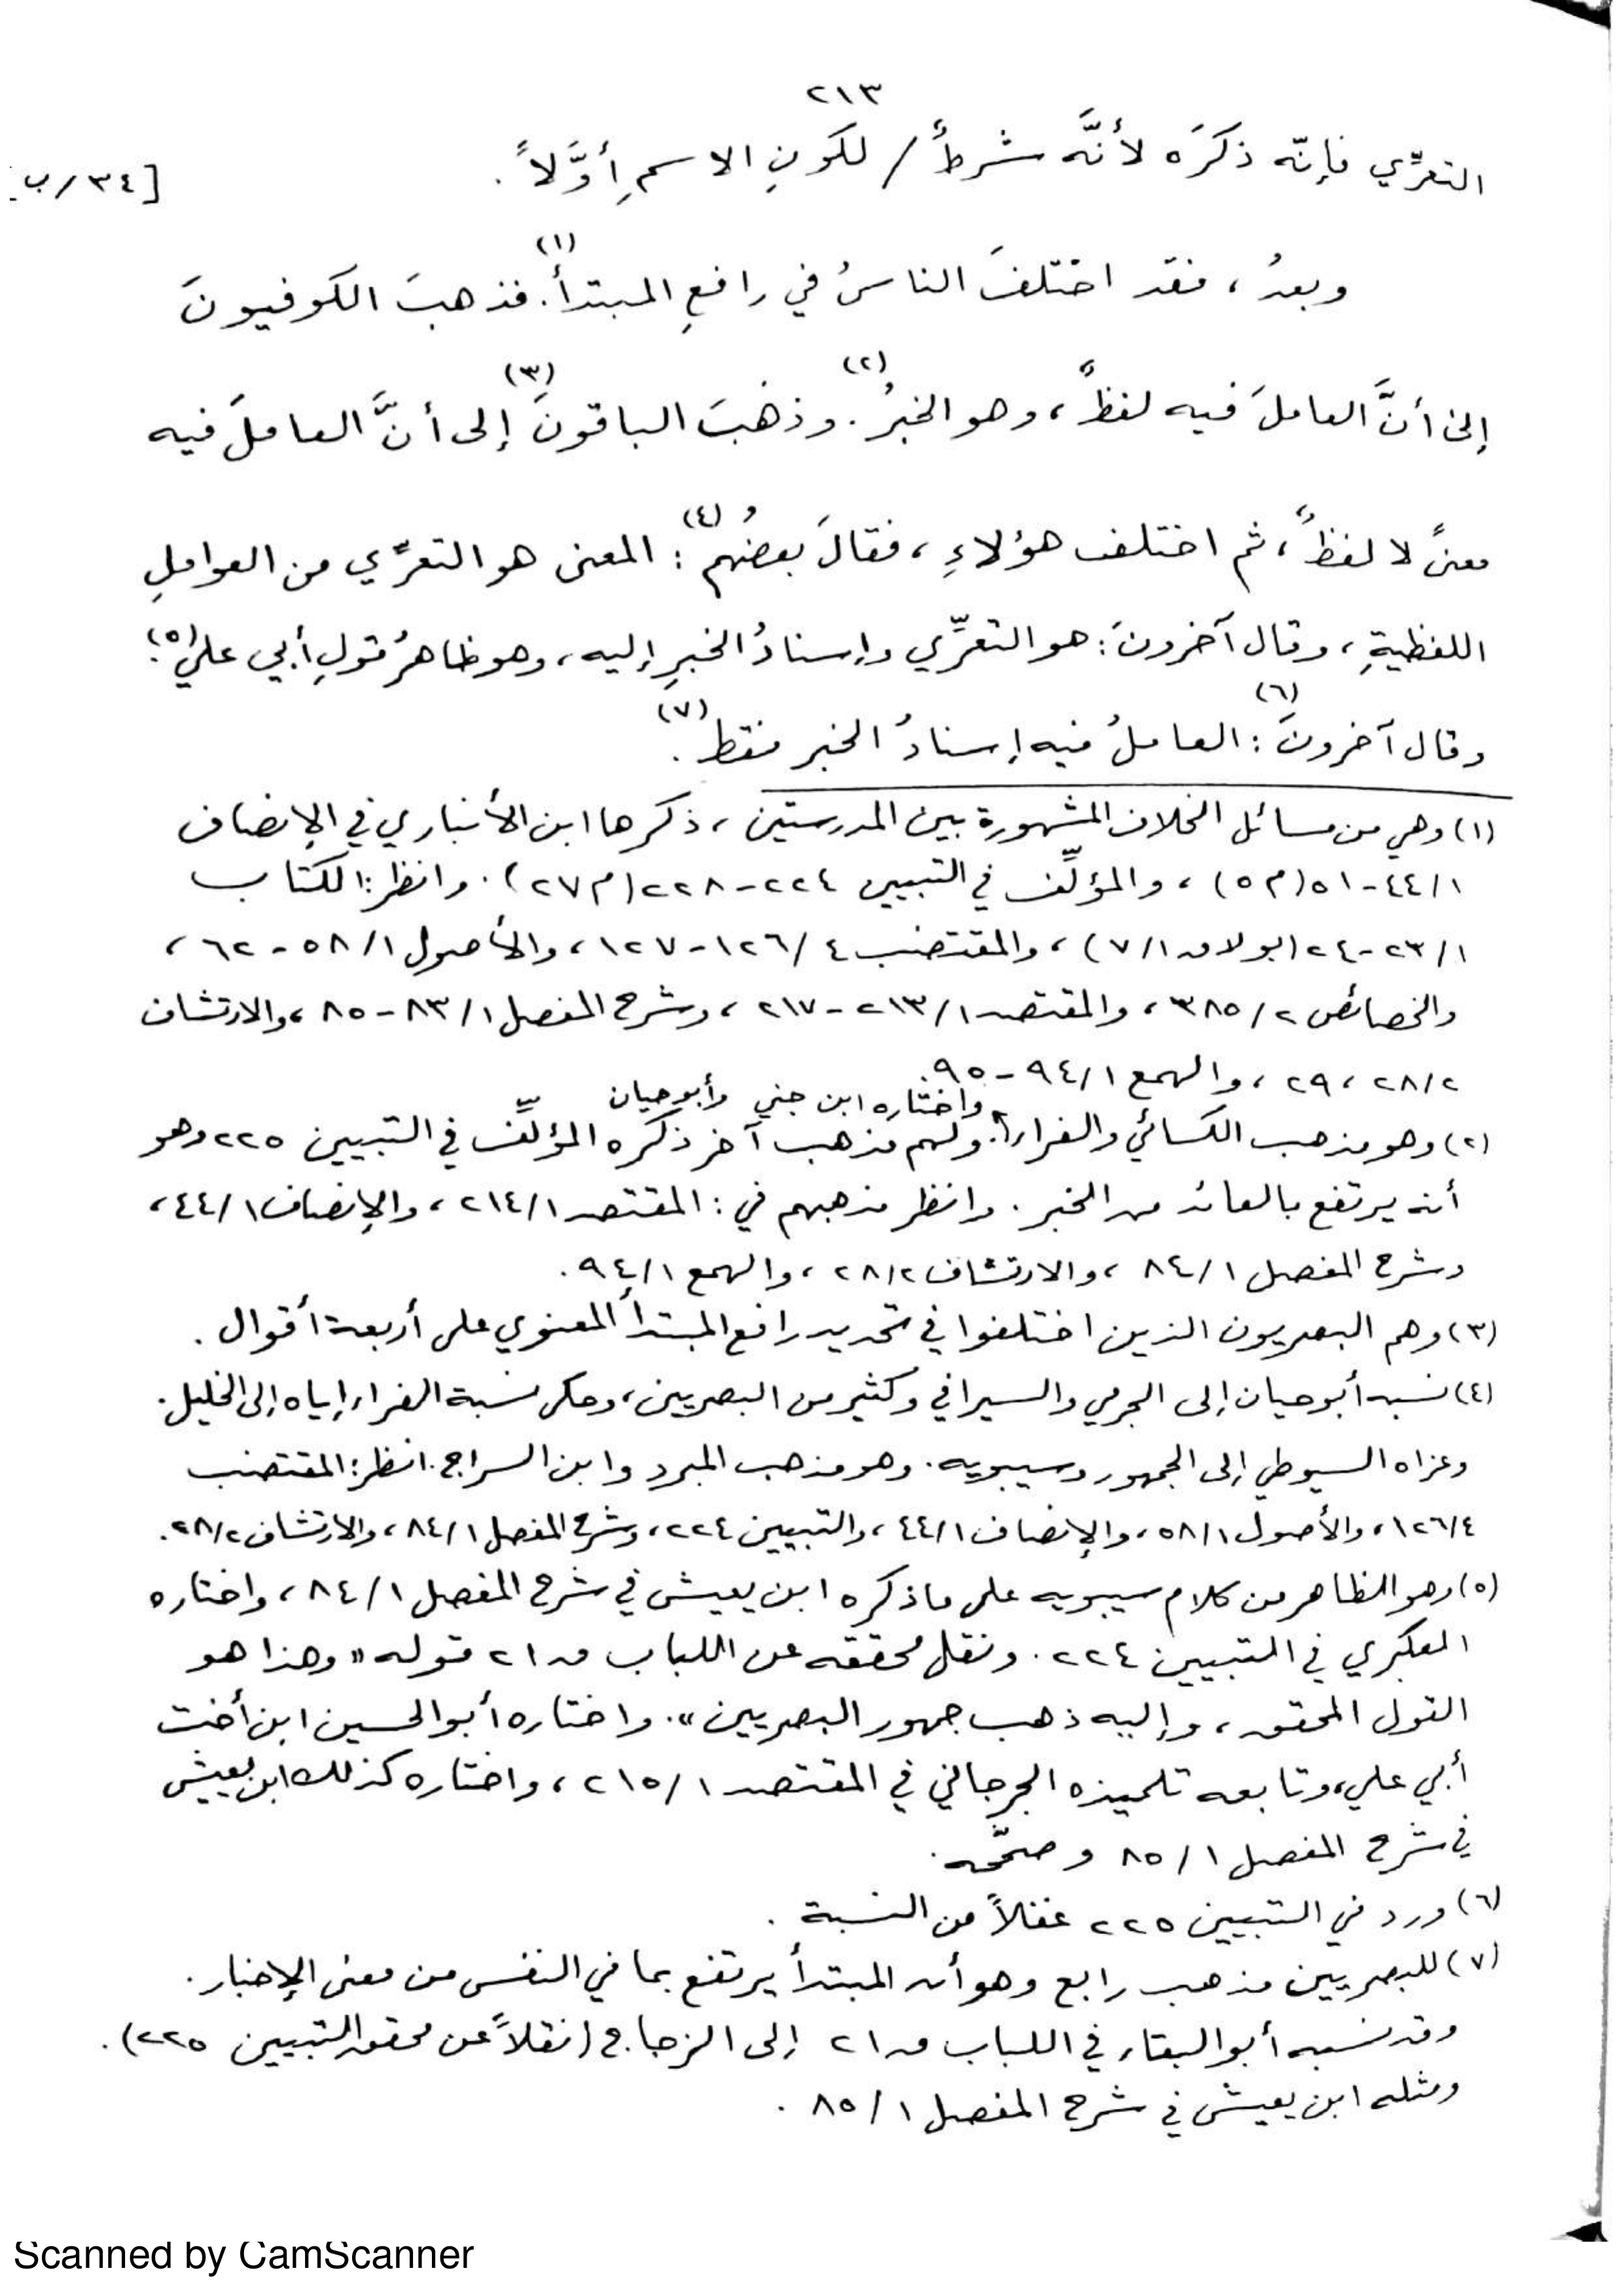 ٢١٣
التعرِّي فإنّه ذكرَه لأنَّه شرطٌ / لكونِ الاسمِ أوَّلاً . [٣٤/ب]
وبعدُ ، فقد اختلفَ الناسُ في رافعِ المبتدأ(١). فذهبَ الكوفيونَ
إلى أنَّ العاملَ فيه لفظٌ ، وهو الخبرُ(٢). وذهبَ الباقونَ(٣) إلى أنَّ العاملَ فيه
معنىً لا لفظٌ ، ثم اختلف هؤلاءِ ، فقالَ بعضُهم(٤) : المعنى هو التعرِّي من العواملِ
اللفظيةِ ، وقال آخرونَ : هو التعرِّي وإسنادُ الخبرِ إليه ، وهو ظاهرُ قولِ أبي عليٍّ(٥) ؛
وقال آخرونَ(٦) : العاملُ فيه إسنادُ الخبر فقط(٧) .
(١) وهي من مسائل الخلاف المشهورة بين المدرستين ، ذكرها ابن الأنباري في الإنصاف
١/ ٤٤-٥١ (م ٥) ، والمؤلِّف في التبيين ٢٢٤-٢٢٨ (م ٢٧) . وانظر : الكتاب
١/ ٢٣-٢٤ (بولاق ١/ ٧) ، والمقتضب ٤/ ١٢٦-١٢٧ ، والأصول ١/ ٥٨-٦٢ ،
والخصائص ٢/ ٣٨٥ ، والمقتصد ١/ ٢١٣-٢١٧ ، وشرح المفصل ١/ ٨٣-٨٥ ، والارتشاف
٢/ ٢٨ ، ٢٩ ، والهمع ١/ ٩٤-٩٥ .
واختاره ابن جني وأبو حيان
(٢) وهو مذهب الكسائي والفراء . ولهم مذهب آخر ذكره المؤلِّف في التبيين ٢٢٥ وهو
أنه يرتفع بالعائد من الخبر . وانظر مذهبهم في : المقتصد ١/ ٢١٤ ، والإنصاف ١/ ٤٤ ،
وشرح المفصل ١/ ٨٤ ، والارتشاف ٢/ ٢٨ ، والهمع ١/ ٩٤ .
(٣) وهم البصريون الذين اختلفوا في تحديد رافع المبتدأ المعنوي على أربعة أقوال .
(٤) نسبه أبو حيان إلى الجرمي والسيرافي وكثير من البصريين ، وحكى نسبة الفراء إياه إلى الخليل .
وعزاه السيوطي إلى الجمهور وسيبويه . وهو مذهب المبرد وابن السراج . انظر : المقتضب
٤/ ١٢٦ ، والأصول ١/ ٥٨ ، والإنصاف ١/ ٤٤ ، والتبيين ٢٢٤ ، وشرح المفصل ١/ ٨٤ ، والارتشاف ٢/ ٢٨ .
(٥) وهو الظاهر من كلام سيبويه على ما ذكره ابن يعيش في شرح المفصل ١/ ٨٤ ، واختاره
العكبري في التبيين ٢٢٤ . ونقل محققه عن اللباب ق ٢١ قوله « وهذا هو
القول المحقق ، وإليه ذهب جمهور البصريين » . واختاره أبو الحسين ابن أخت
أبي علي ، وتابعه تلميذه الجرجاني في المقتصد ١/ ٢١٥ ، واختاره كذلك ابن يعيش
في شرح المفصل ١/ ٨٥ وصحّحه .
(٦) ورد في التبيين ٢٢٥ غفلاً من النسبة .
(٧) للبصريين مذهب رابع وهو أن المبتدأ يرتفع بما في النفس من معنى الإخبار .
وقد نسبه أبو البقاء في اللباب ق ٢١ إلى الزجاج (نقلاً عن محقق التبيين ٢٢٥) .
ومثله ابن يعيش في شرح المفصل ١/ ٨٥ .
Scanned by CamScanner